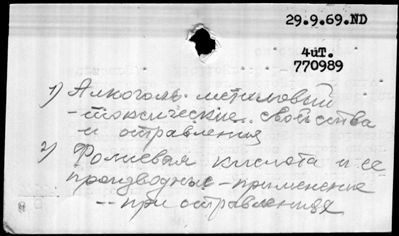 29.9.69.ND
4иT.
770989
1) Алкоголь метиловый
- токсические свойства
и отравления
2) Фолиевая кислота и ее
производные - применение
-- при отравлениях